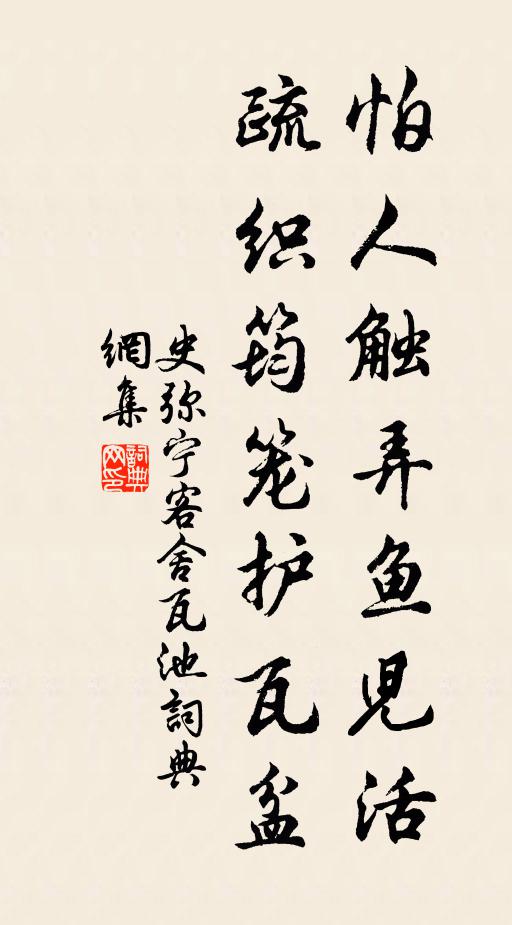 怕人触弄鱼児活
疏织筠笼护瓦盆
史弥宁客舍瓦池詞典
網集
詞典网印